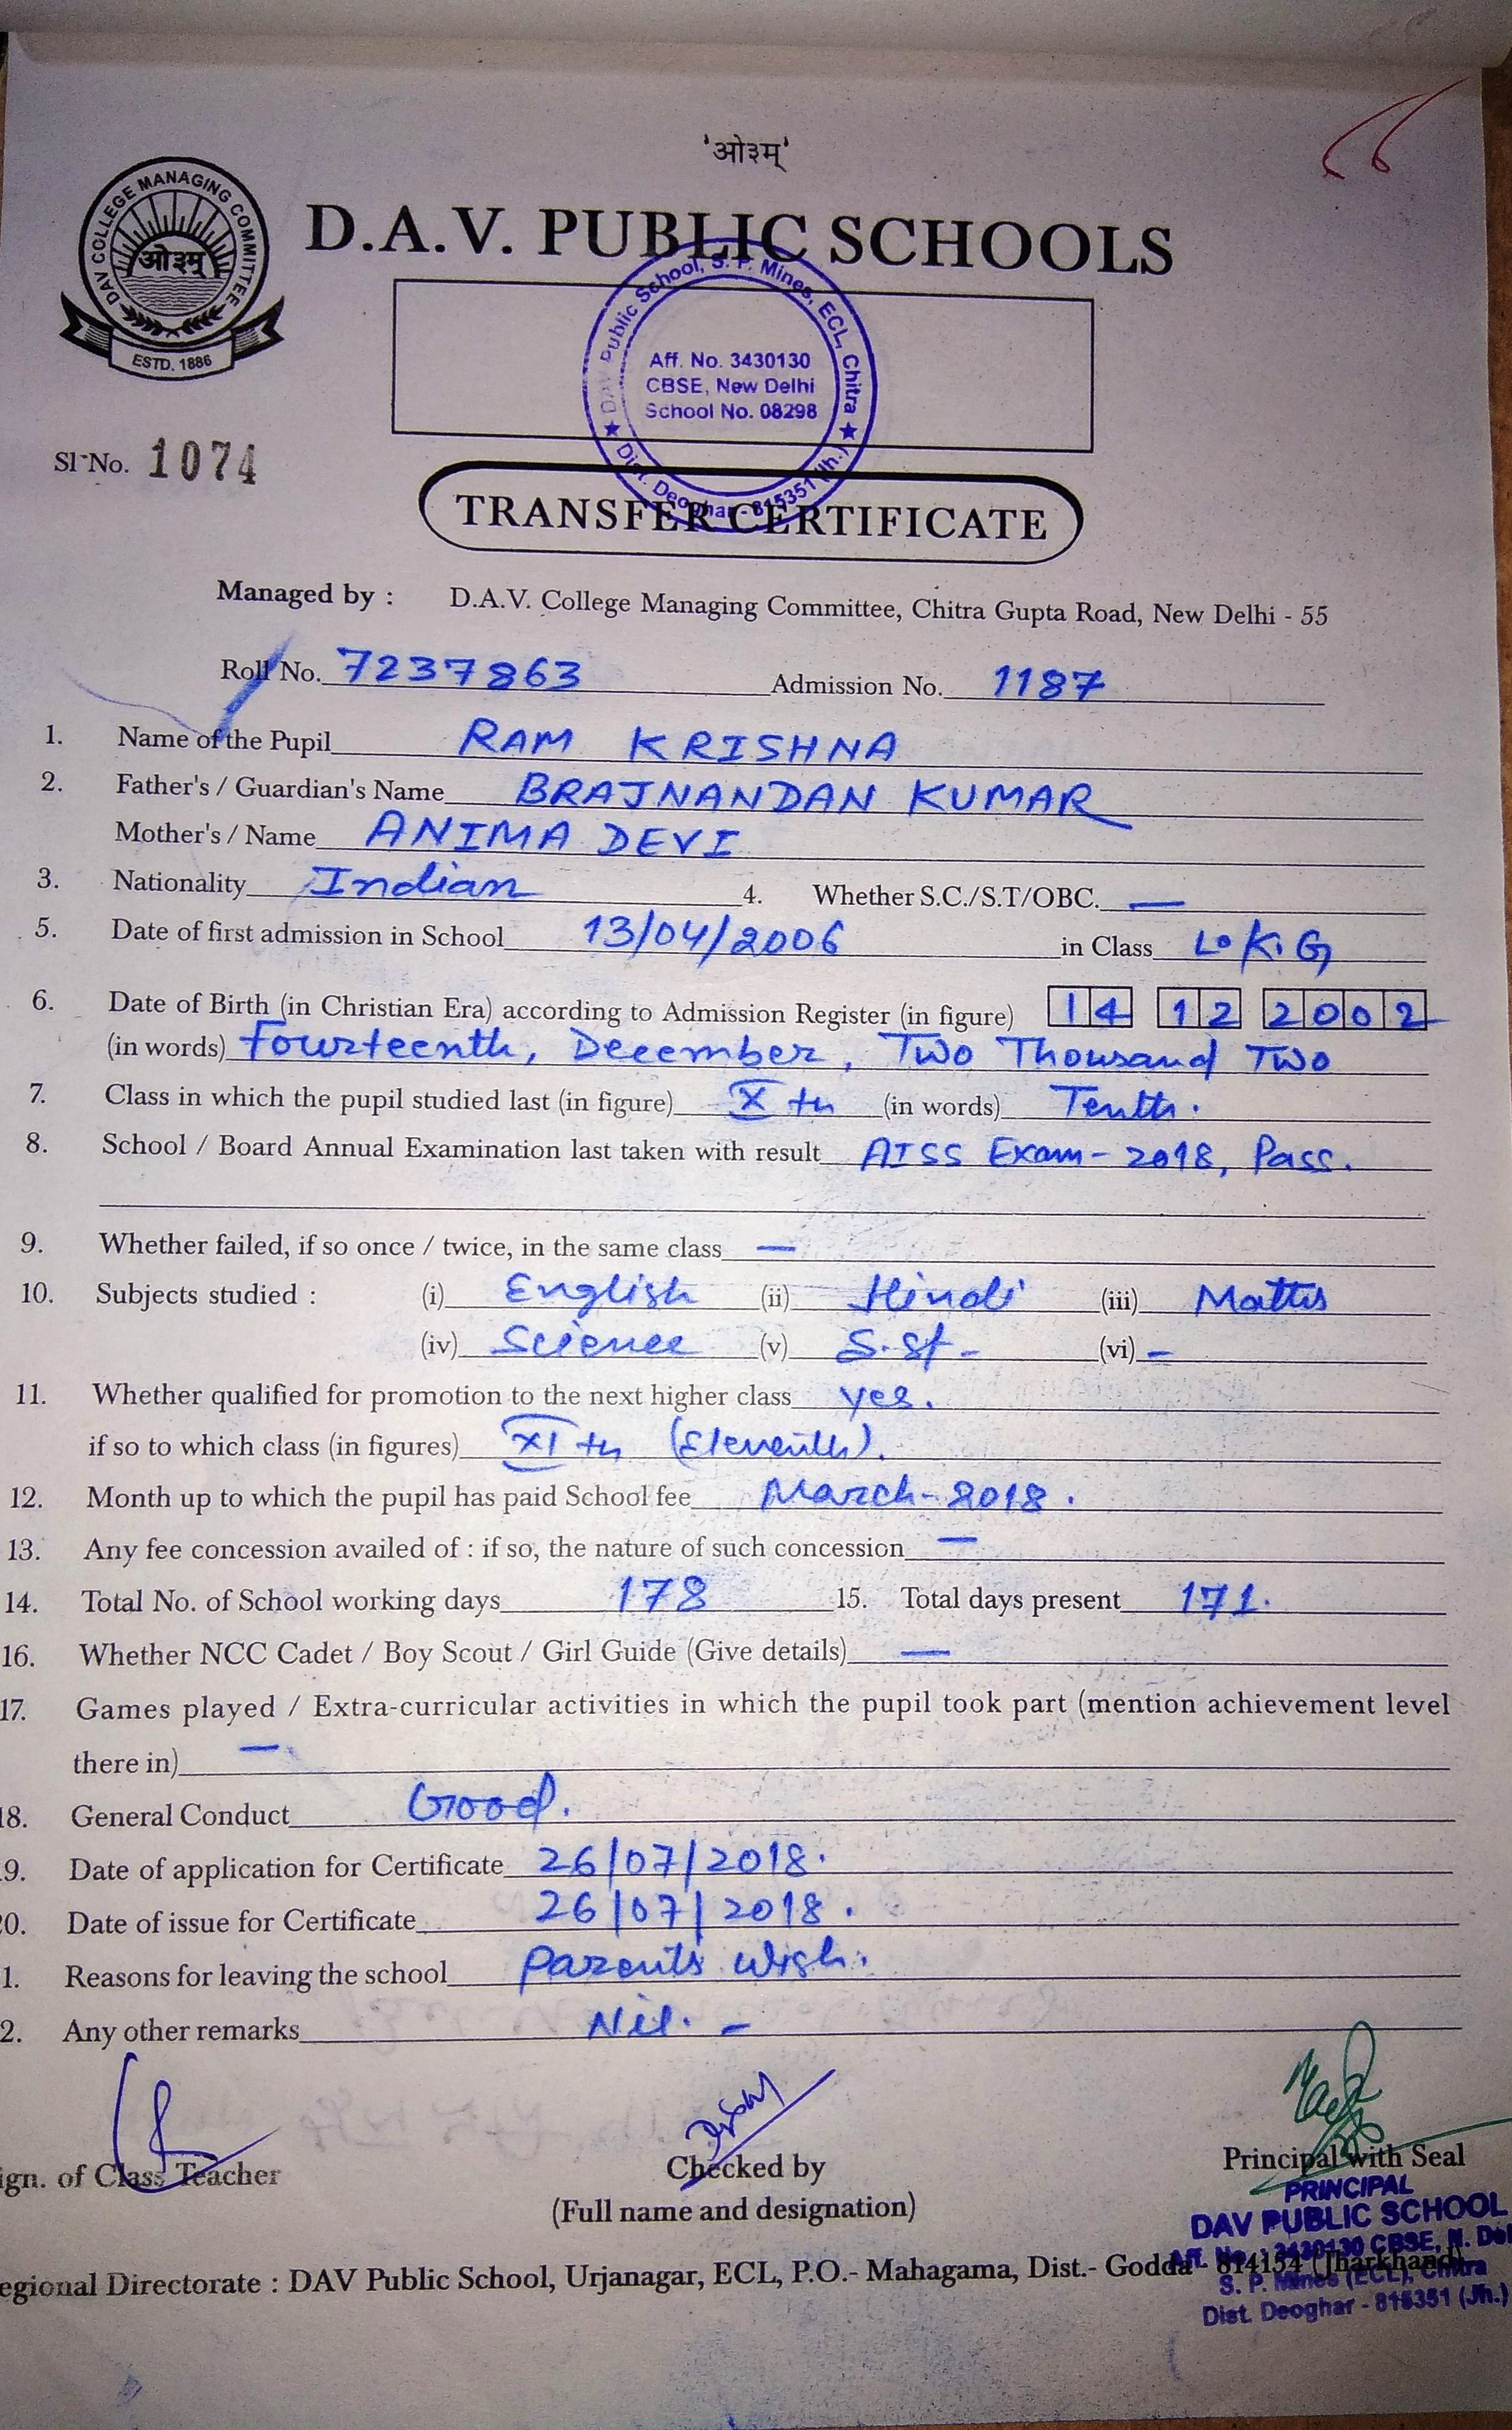 'ओ३म्'
DAV COLLEGE MANAGING COMMITTEE
ओ३म्
ESTD. 1886
D.A.V. PUBLIC SCHOOLS
DAV Public School, S. P. Mines, ECL, Chitra
Aff. No. 3430130
CBSE, New Delhi
School No. 08298
Dist. Deoghar - 815351 (Jh.)
Sl No. 1074
TRANSFER CERTIFICATE
Managed by : D.A.V. College Managing Committee, Chitra Gupta Road, New Delhi - 55
Roll No. 7237863 Admission No. 1187
1. Name of the Pupil RAM KRISHNA
2. Father's / Guardian's Name BRAJNANDAN KUMAR
Mother's / Name ANIMA DEVI
3. Nationality Indian 4. Whether S.C./S.T/OBC. —
5. Date of first admission in School 13/04/2006 in Class L.K.G
6. Date of Birth (in Christian Era) according to Admission Register (in figure) 14 12 2002
(in words) Fourteenth, December, Two Thousand Two
7. Class in which the pupil studied last (in figure) X th (in words) Tenth.
8. School / Board Annual Examination last taken with result AISS Exam - 2018, Pass.
9. Whether failed, if so once / twice, in the same class —
10. Subjects studied : (i) English (ii) Hindi (iii) Maths
(iv) Science (v) S.St - (vi) —
11. Whether qualified for promotion to the next higher class yes.
if so to which class (in figures) XI th (Eleventh).
12. Month up to which the pupil has paid School fee March - 2018.
13. Any fee concession availed of : if so, the nature of such concession —
14. Total No. of School working days 178 15. Total days present 171.
16. Whether NCC Cadet / Boy Scout / Girl Guide (Give details) —
17. Games played / Extra-curricular activities in which the pupil took part (mention achievement level
there in) —
18. General Conduct Good.
9. Date of application for Certificate 26/07/2018.
20. Date of issue for Certificate 26/07/2018.
1. Reasons for leaving the school Parents wish.
2. Any other remarks Nil. -
ign. of Class Teacher Checked by Principal with Seal
(Full name and designation)
PRINCIPAL
DAV PUBLIC SCHOOL
Aff. No. : 3430130 CBSE, N. Del
egional Directorate : DAV Public School, Urjanagar, ECL, P.O.- Mahagama, Dist.- Godda - 814154 (Jharkhand)
S. P. Mines (ECL), Chitra
Dist. Deoghar - 815351 (Jh.)